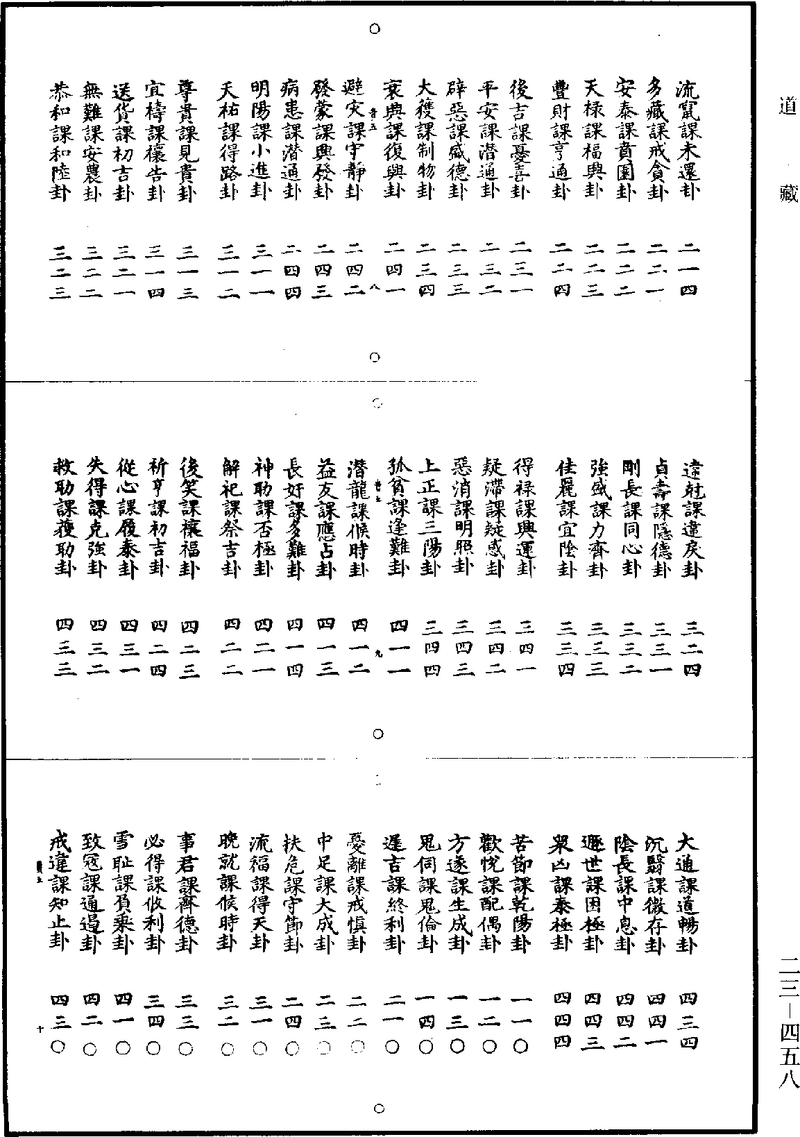 道藏
流竄課未還卦 二一四
多藏課戒貪卦 二二一
安泰課賁園卦 二二二
天祿課福興卦 二二三
豐財課亨通卦 二二四
後吉課憂喜卦 二三一
平安課潛通卦 二三二
辟惡課盛德卦 二三三
大穫課制物卦 二三四
衰興課復興卦 二四一
避灾課守靜卦 二四二
發蒙課興發卦 二四三
病患課潛通卦 二四四
明陽課小進卦 三一一
天祐課得路卦 三一二
尊貴課見貴卦 三一三
宜禱課禳告卦 三一四
送貨課初吉卦 三二一
無難課安農卦 三二二
恭和課和陸卦 三二三
遠尅課違戾卦 三二四
貞壽課隱德卦 三三一
剛長課同心卦 三三二
強盛課力齊卦 三三三
佳麗課宜陰卦 三三四
得祿課興運卦 三四一
疑滯課疑惑卦 三四二
惡消課明照卦 三四三
上正課三陽卦 三四四
孤貧課逢難卦 四一一
潛龍課候時卦 四一二
益友課應占卦 四一三
長好課多難卦 四一四
神助課否極卦 四二一
解祀課祭吉卦 四二二
後笑課禳福卦 四二三
祈亨課初吉卦 四二四
從心課履泰卦 四三一
失得課克強卦 四三二
救助課獲助卦 四三三
大通課道暢卦 四三四
沉翳課微存卦 四四一
陰長課中息卦 四四二
遯世課困極卦 四四三
眾凶課泰極卦 四四四
苦節課乾陽卦 一一〇
歡悅課配偶卦 一二〇
方逐課生成卦 一三〇
鬼伺課鬼倫卦 一四〇
遲吉課終利卦 二一〇
憂離課戒慎卦 二二〇
中足課大成卦 二三〇
扶危課守節卦 二四〇
流福課得天卦 三一〇
晚就課候時卦 三二〇
事君課齊德卦 三三〇
必得課攸利卦 三四〇
雪恥課負乘卦 四一〇
致寇課通過卦 四二〇
戒違課知止卦 四三〇
八
九
十
二三—四五八